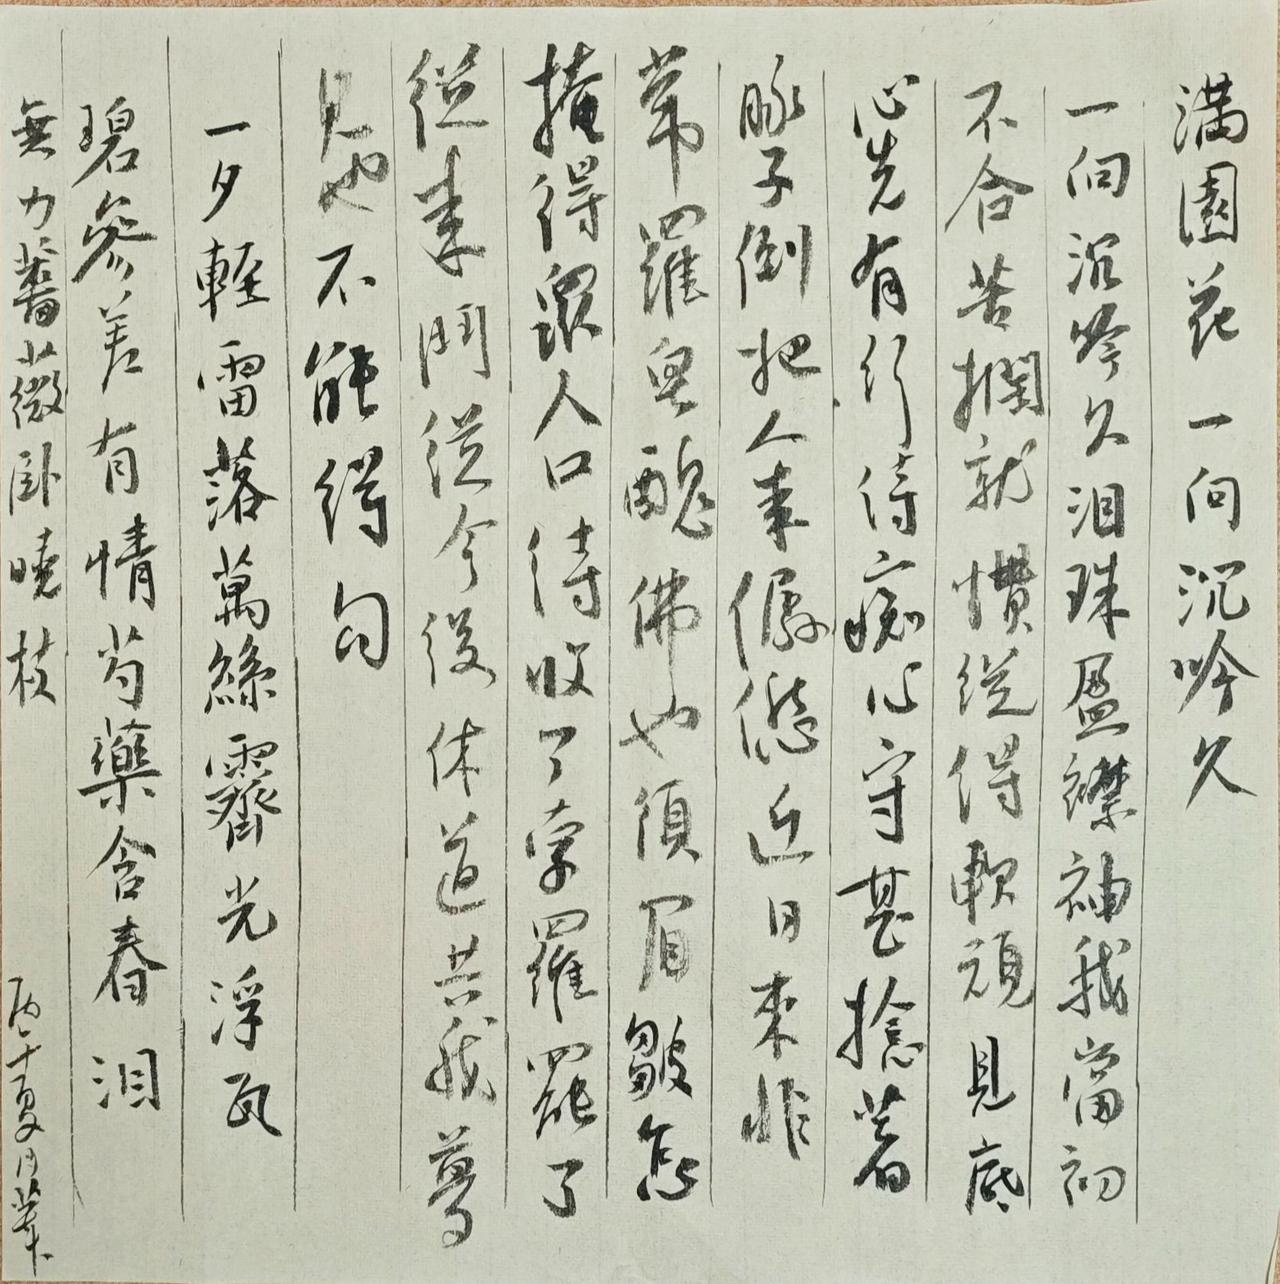 滿園花 一向沉吟久
一向沉吟久泪珠盈襟袖我當初
不合苦撋就慣縱得軟頑見底
心先有行待癡心守甚捻著
脉子倒把人来僝僽近日来非
常羅皂醜佛也須眉皺怎
掩得眾人口待收了孛羅罷了
從来斗從今後休道共我夢
見也不能得勾
一夕輕雷落萬絲霽光浮瓦
碧參差有情芍藥含春泪
無力薔薇卧曉枝
夏月